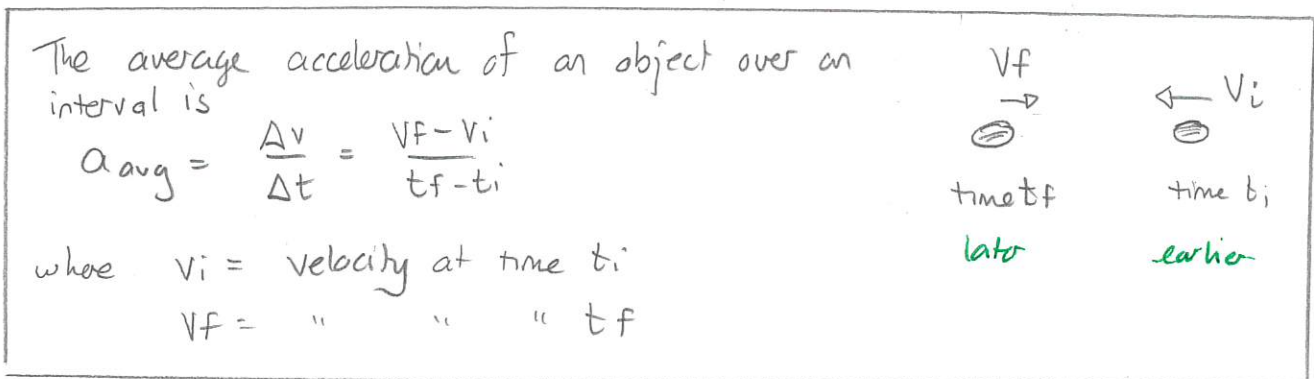 The average acceleration of an object over an
interval is
a avg = Δv/Δt = vf - vi / tf - ti
where vi = velocity at time ti
vf = " " " tf
vf
vi
time tf
time ti
later
earlier